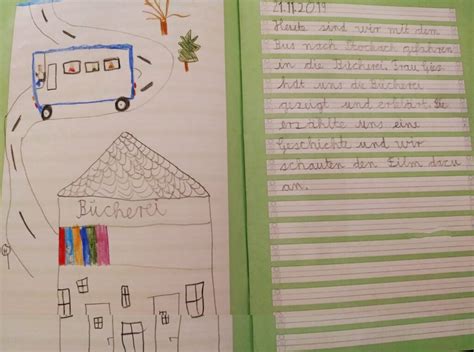 Bücherei
21.11.2019
Heute sind wir mit dem
Bus nach Stockach gefahren
in die Bücherei. Frau
hat uns die Bücherei
gezeigt und erklärt. Sie
erzählte uns eine
Geschichte und wir
schauten den Film dazu
an.